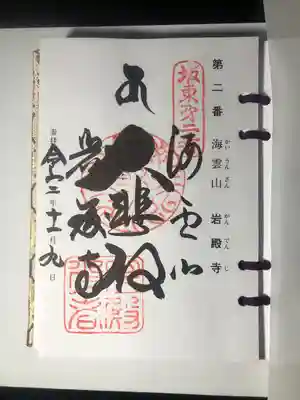 第二番 海雲山 岩殿寺
かいうんざん がんでんじ
坂東第二番
海雲山
大悲殿
岩殿寺
令和二年十一月九日